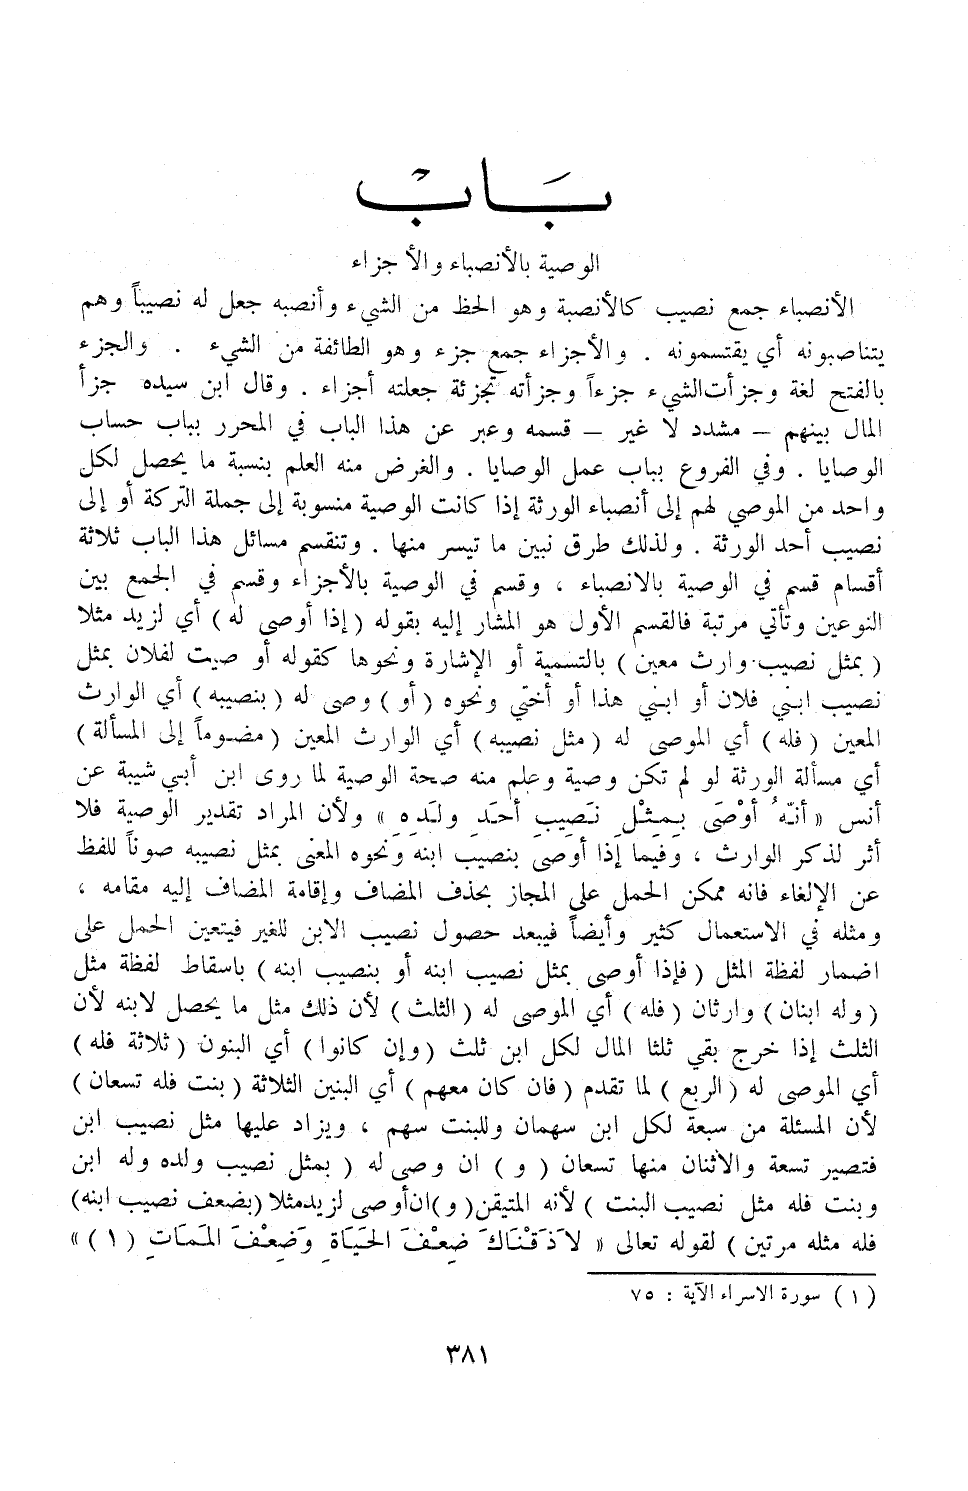 بَابْ
الوصية بالأنصباء والأجزاء
الأنصباء جمع نصيب كالأنصبة وهو الحظ من الشيء وأنصبه جعل له نصيباً وهم
يتناصبونه أي يقتسمونه . والأجزاء جمع جزء وهو الطائفة من الشيء . والجزء
بالفتح لغة وجزأت الشيء جزءاً وجزأته تجزئة جعلته أجزاء . وقال ابن سيده جزأ
المال بينهم – مشدد لا غير – قسمه وعبر عن هذا الباب في المحرر بباب حساب
الوصايا . وفي الفروع بباب عمل الوصايا . والغرض منه العلم بنسبة ما يحصل لكل
واحد من الموصي لهم إلى أنصباء الورثة إذا كانت الوصية منسوبة إلى جملة التركة أو إلى
نصيب أحد الورثة . ولذلك طرق نبين ما تيسر منها . وتنقسم مسائل هذا الباب ثلاثة
أقسام قسم في الوصية بالانصباء ، وقسم في الوصية بالأجزاء وقسم في الجمع بين
النوعين وتأتي مرتبة فالقسم الأول هو المشار إليه بقوله ( إذا أوصى له ) أي لزيد مثلا
( بمثل نصيب وارث معين ) بالتسمية أو الإشارة ونحوها كقوله أو صيت لفلان بمثل
نصيب ابني فلان أو ابني هذا أو أختي ونحوه ( أو ) وصى له ( بنصيبه ) أي الوارث
المعين ( فله ) أي الموصى له ( مثل نصيبه ) أي الوارث المعين ( مضموماً إلى المسألة )
أي مسألة الورثة لو لم تكن وصية وعلم منه صحة الوصية لما روى ابن أبي شيبة عن
أنس « أنَّهُ أوْصَى بِمِثْلِ نَصِيبِ أحَدِ ولَدِهِ » ولأن المراد تقدير الوصية فلا
أثر لذكر الوارث ، وفيما إذا أوصى بنصيب ابنه ونحوه المعنى بمثل نصيبه صوناً للفظ
عن الإلغاء فانه ممكن الحمل على المجاز بحذف المضاف وإقامة المضاف إليه مقامه ،
ومثله في الاستعمال كثير وأيضاً فيبعد حصول نصيب الابن للغير فيتعين الحمل على
اضمار لفظة المثل ( فإذا أوصى بمثل نصيب ابنه أو بنصيب ابنه ) باسقاط لفظة مثل
( وله ابنان ) وارثان ( فله ) أي الموصى له ( الثلث ) لأن ذلك مثل ما يحصل لابنه لأن
الثلث إذا خرج بقي ثلثا المال لكل ابن ثلث ( وإن كانوا ) أي البنون ( ثلاثة فله )
أي الموصى له ( الربع ) لما تقدم ( فان كان معهم ) أي البنين الثلاثة ( بنت فله تسعان )
لأن المسئلة من سبعة لكل ابن سهمان وللبنت سهم ، ويزاد عليها مثل نصيب ابن
فتصير تسعة والاثنان منها تسعان ( و ) ان وصى له ( بمثل نصيب ولده وله ابن
وبنت فله مثل نصيب البنت ) لأنه المتيقن ( و ) ان أوصى لزيد مثلا ( بضعف نصيب ابنه )
فله مثله مرتين ) لقوله تعالى « لأَذَقْنَاكَ ضِعْفَ الحَيَاةِ وَضِعْفَ المَمَاتِ ( ١ ) »
( ١ ) سورة الاسراء الآية : ٧٥
٣٨١